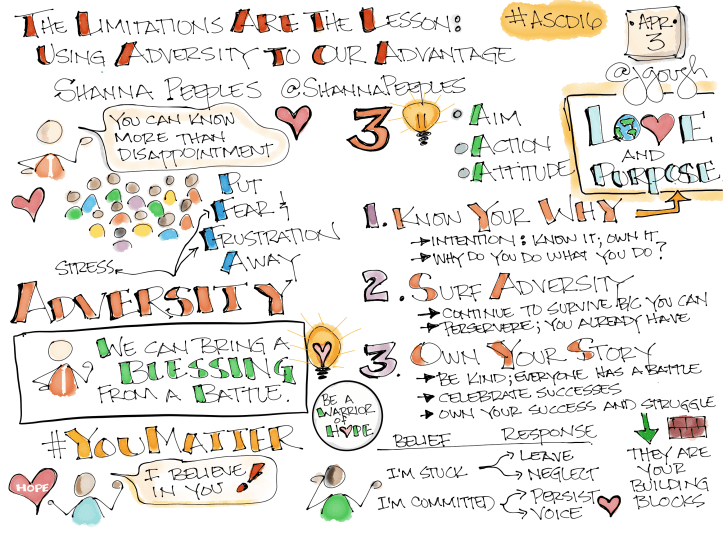 THE LIMITATIONS ARE THE LESSON:
USING ADVERSITY TO OUR ADVANTAGE
#ASCD16
APR
3
SHANNA PEEPLES @SHANNAPEEPLES
@jgough
YOU CAN KNOW
MORE THAN
DISAPPOINTMENT
3
AIM
ACTION
ATTITUDE
LOVE
AND
PURPOSE
PUT
FEAR &
FRUSTRATION
AWAY
STRESS
ADVERSITY
WE CAN BRING A
BLESSING
FROM A BATTLE.
#YOUMATTER
HOPE
I BELIEVE
IN YOU!
1. KNOW YOUR WHY
INTENTION: KNOW IT; OWN IT
WHY DO YOU DO WHAT YOU DO?
2. SURF ADVERSITY
CONTINUE TO SURVIVE B/C YOU CAN
PERSERVERE; YOU ALREADY HAVE
3. OWN YOUR STORY
BE KIND; EVERYONE HAS A BATTLE
CELEBRATE SUCCESSES
OWN YOUR SUCCESS AND STRUGGLE
BE A
WARRIOR
OF
HOPE
BELIEF RESPONSE
I'M STUCK LEAVE
NEGLECT
I'M COMMITTED PERSIST
VOICE
THEY ARE
YOUR
BUILDING
BLOCKS